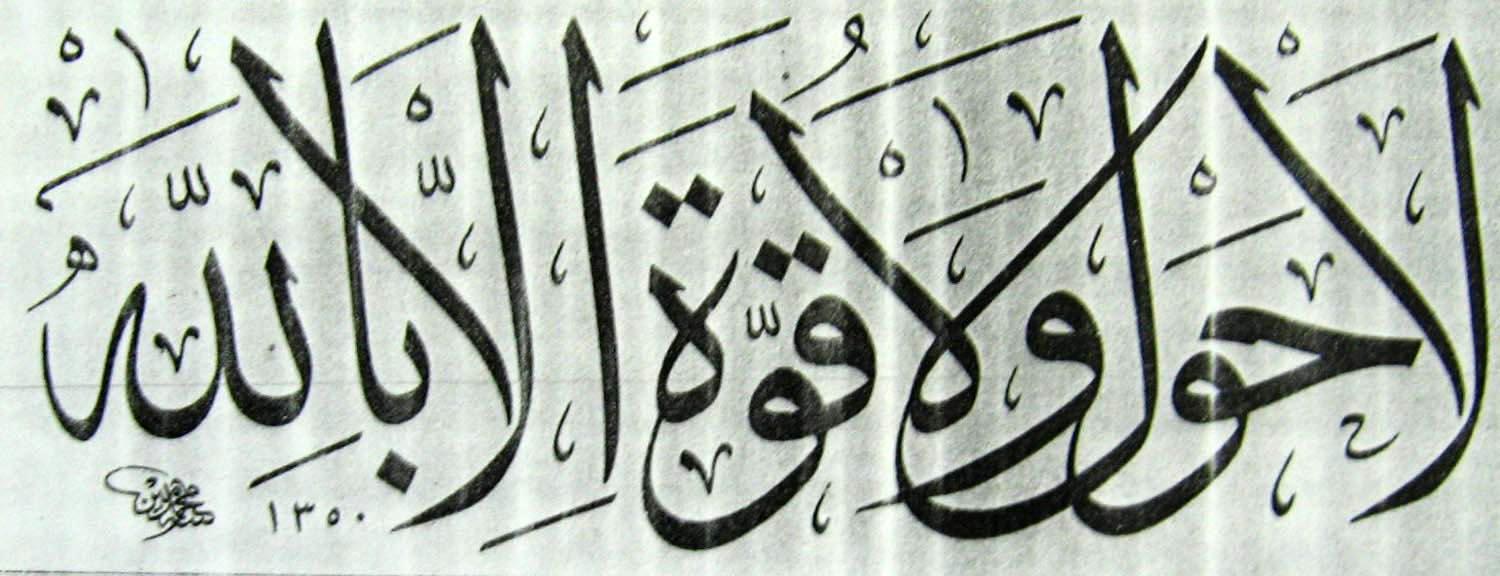 لا حول ولا قوّة الا باللّه
١٣٥٠